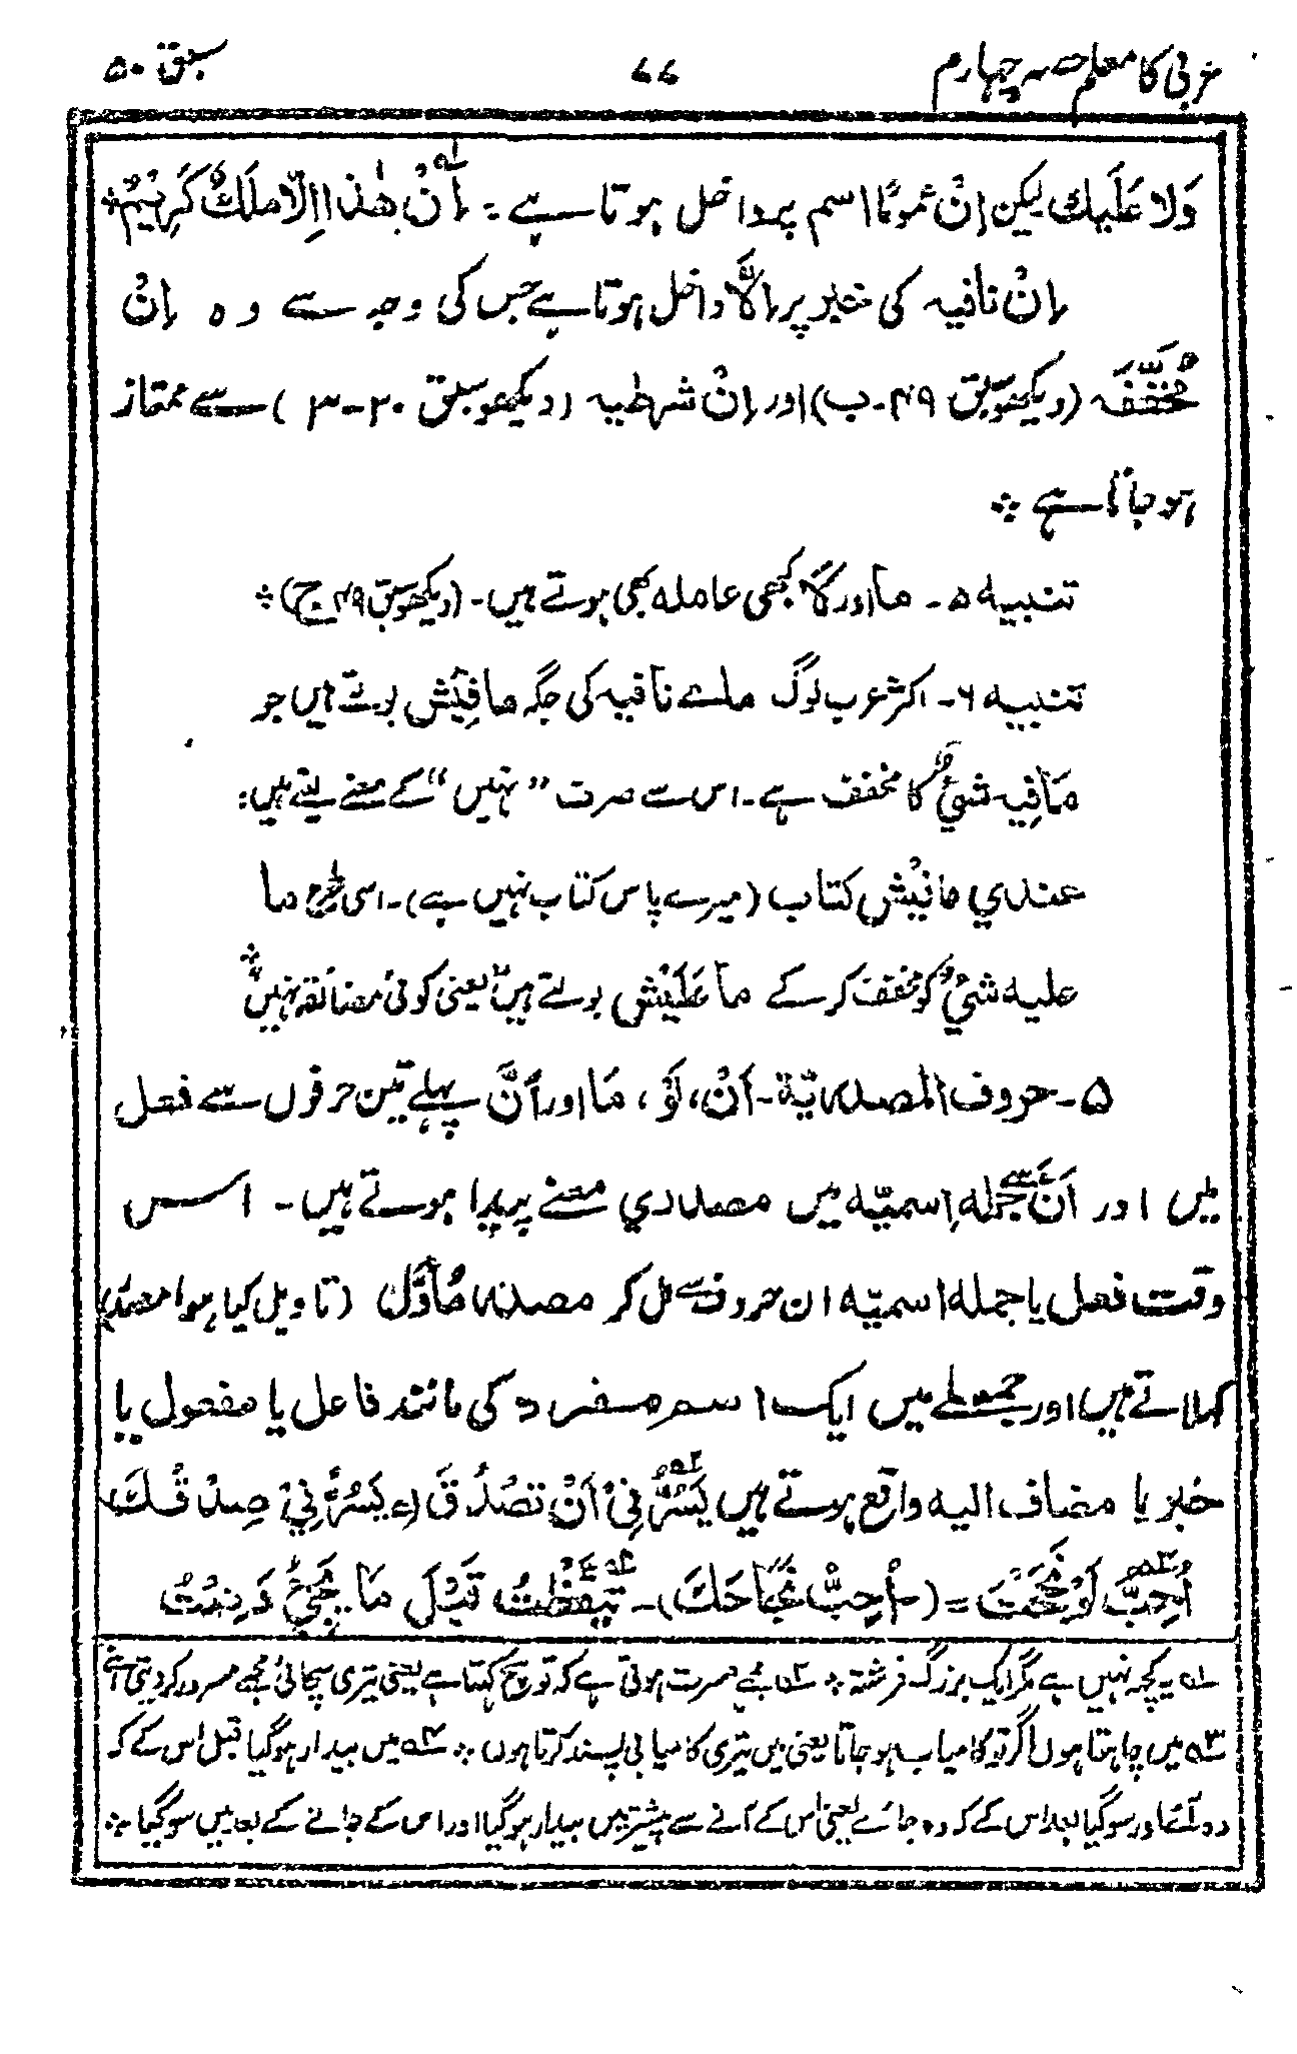 عربی کا معلم حصہ چہارم ۷۷ سبق ۵۰
وَلا عَلَيك لیکن اِنْ عمومًا اسم پر داخل ہوتا ہے : اِنْ هٰذا اِلّا مَلَكٌ كَرِيْمٌ ؎۱ ؞
اِنْ نافیہ کی خبر پر اِلّا داخل ہوتا ہے جس کی وجہ سے وہ اِنْ
مُخَفَّفَہ (دیکھو سبق ۴۹-ب) اور اِنْ شرطیہ (دیکھو سبق ۲۰-۳) سے ممتاز
ہو جاتا ہے ؞
تنبیہ ۵ - ما اور لا کبھی عاملہ بھی ہوتے ہیں - (دیکھو سبق ۴۹ ج) ؞
تنبیہ ۶ - اکثر عرب لوگ مائے نافیہ کی جگہ مافِيْش بولتے ہیں جو
مَا فِيہ شَيْءٌ کا مخفف ہے - اس سے صرف "نہیں" کے معنے لیتے ہیں :
عندي مافيْش كتاب (میرے پاس کتاب نہیں ہے) - اسی طرح ما
علیہ شَيْءٌ کو مخفف کرکے ما عَلَيْش بولتے ہیں یعنی کوئی مضائقہ نہیں ؞
۵ - حروف المصدریّة - اَنْ، لَوْ، مَا اور اَنَّ پہلے تین حرفوں سے فعل
میں اور اَنَّ سے جملہ اِسمیّہ میں مصدری معنے پیدا ہوتے ہیں - اس
وقت فعل یا جملہ اسمیّہ ان حروف سے مل کر مصدر مُأَوَّل (تاویل کیا ہوا مصدر)
کہلاتے ہیں اور جملے میں ایک اسم مفرد کی مانند فاعل یا مفعول یا
خبر یا مضاف الیہ واقع ہوتے ہیں يَسُرُّنِيْ اَنْ تَصْدُقَ ؎۲ (= يَسُرُّنِيْ صِدْقُكَ)
اُحِبُّ لَوْ نَجَحْتَ ؎۳ = (اُحِبُّ نَجَاحَكَ) - تَيَقَّظْتُ ؎۴ قَبْلَ مَا يَجِيْءُ وَنِمْتُ
؎۱ یہ کچھ نہیں ہے مگر ایک بزرگ فرشتہ ؞ ؎۲ مجھے مسرت ہوتی ہے کہ تو سچ کہتا ہے یعنی تیری سچائی مجھے مسرور کر دیتی ہے
؎۳ میں چاہتا ہوں اگر تو کامیاب ہو جاتا یعنی میں تیری کامیابی پسند کرتا ہوں ؞ ؎۴ میں بیدار ہو گیا قبل اس کے کہ
وہ آئے اور سو گیا بعد اس کے کہ وہ جائے یعنی اس کے آنے سے پیشتر میں بیدار ہو گیا اور اس کے جانے کے بعد میں سو گیا ؞